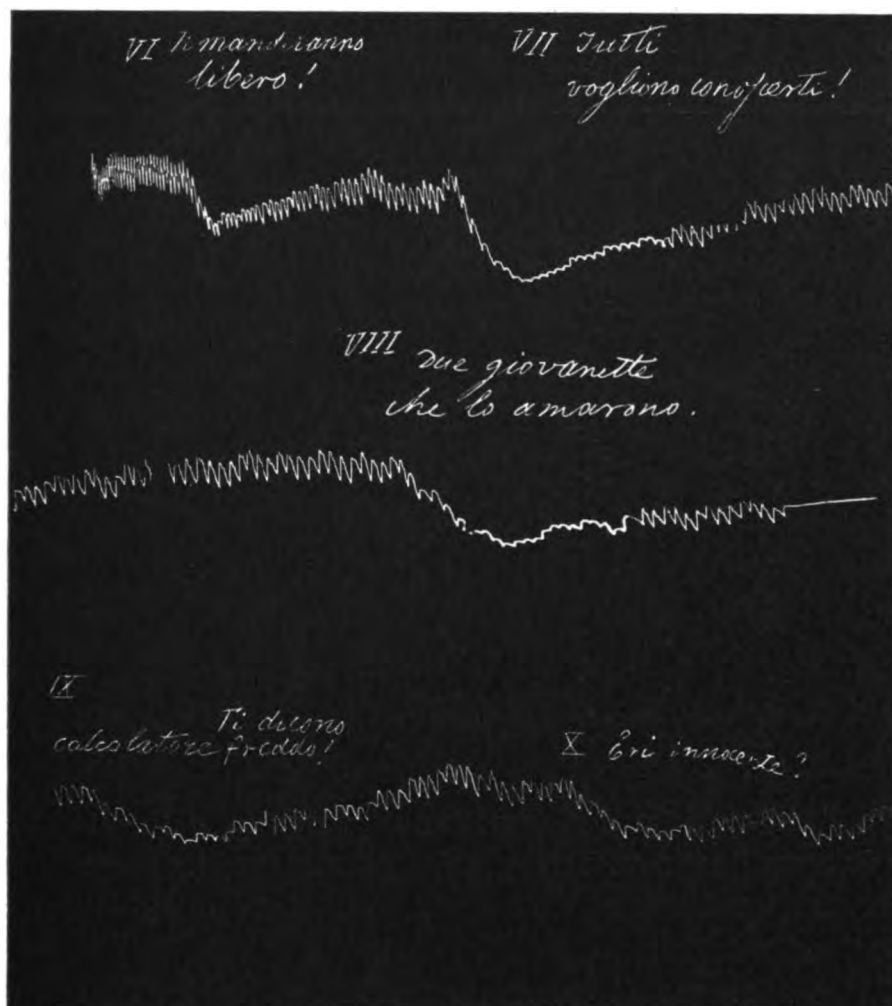 VI Ti manderanno
libero!
VII Tutti
vogliono conoscerti!
VIII Due giovanette
che lo amarono.
IX
Ti dicono
calcolatore freddo!
X Eri innocente?